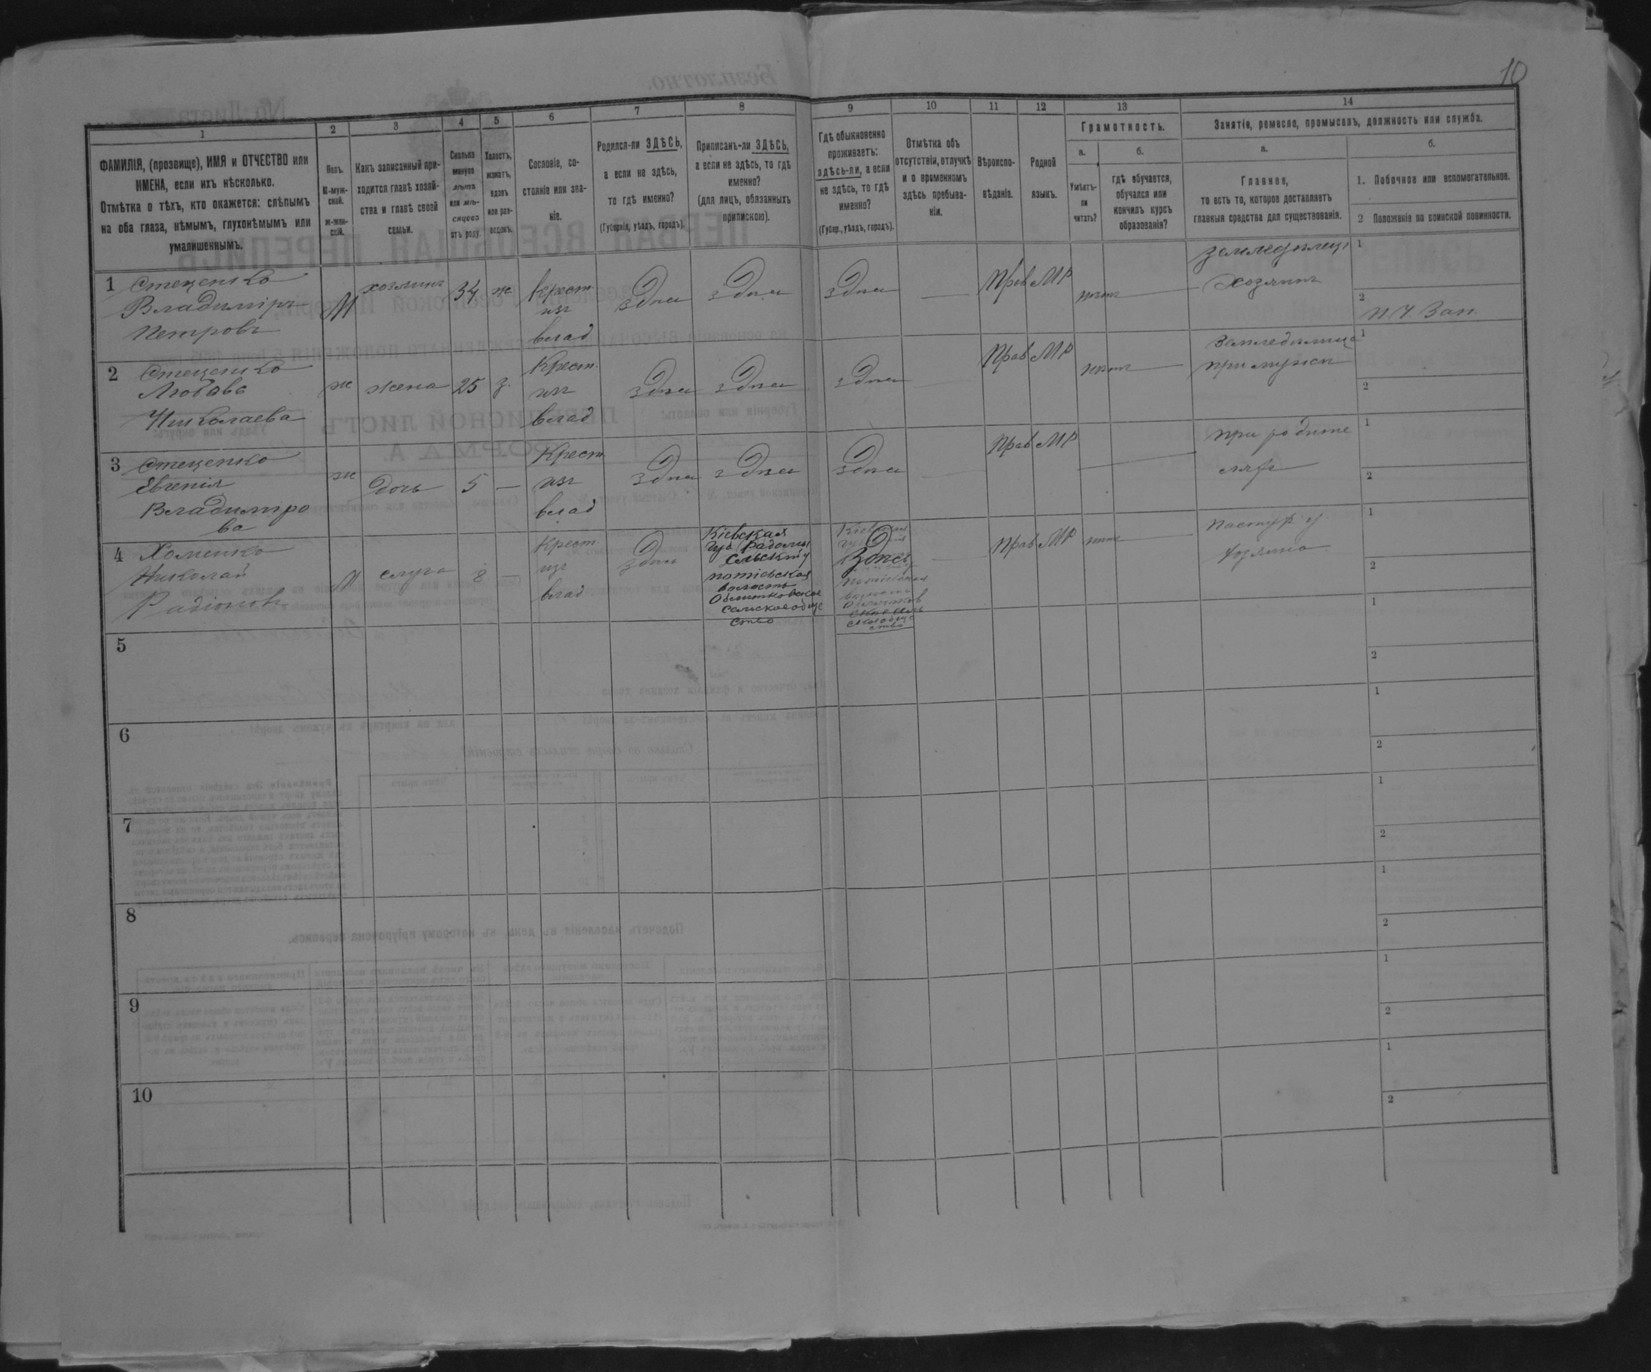 10
1
2
3
4
5
6
7
8
9
10
11
12
13
14
ФАМИЛІЯ, (прозвище), ИМЯ и ОТЧЕСТВО или
ИМЕНА, если ихъ нѣсколько.
Отмѣтка о тѣхъ, кто окажется: слѣпымъ
на оба глаза, нѣмымъ, глухонѣмымъ или
умалишеннымъ.
Полъ.
М-муж-
ской.
Ж-жен-
скій.
Какъ записанный при-
ходится главѣ хозяй-
ства и главѣ своей
семьи.
Сколько
минуло
лѣтъ
или мѣ-
сяцевъ
отъ роду.
Холостъ,
женатъ,
вдовъ
или раз-
веденъ.
Сословіе, со-
стояніе или зва-
ніе.
Родился-ли ЗДѢСЬ,
а если не здѣсь,
то гдѣ именно?
(Губернія, уѣздъ, городъ).
Приписанъ-ли ЗДѢСЬ,
а если не здѣсь, то гдѣ
именно?
(для лицъ, обязанныхъ
припискою).
Гдѣ обыкновенно
проживаетъ:
здѣсь-ли, а если
не здѣсь, то гдѣ
именно?
(Губер., уѣздъ, городъ).
Отмѣтка объ
отсутствіи, отлучкѣ
и о временномъ
здѣсь пребыва-
ніи.
Вѣроиспо-
вѣданіе.
Родной
языкъ.
Грамотность.
а.
Умѣетъ-
ли
читать?
б.
Гдѣ обучается,
обучался или
кончилъ курсъ
образованія?
Занятіе, ремесло, промыселъ, должность или служба.
а.
Главное,
то есть то, которое доставляетъ
главныя средства для существованія.
б.
1. Побочное или вспомогательное.
2 Положеніе по воинской повинности.
1 Стеценко
Владиміръ
Петровъ
М
хозяинъ
34
ж
Крест
изъ
влад
здесь
здесь
здесь
—
Прав
МР
нетъ
земледелецъ
Хозяинъ
1
2
2 Стеценко
Любовь
Николаева
ж
жена
25
з
Крест
изъ
влад
здесь
здесь
здесь
Прав
МР
нетъ
при мужѣ
1
2
3 Стеценко
Евгенія
Владиміро
ва
ж
Дочь
5
—
Крест
изъ
влад
здесь
здесь
здесь
Прав
МР
при родите
ляхъ
1
2
4 Хоменко
Николай
М
слуга
8
Крест
изъ
влад
здесь
Кіевская
губ Радомы
сльскій у
потіевская
волость
сельское обще
ство
здесь
—
Прав
МР
нетъ
Пастухъ у
хозяина
1
2
5
1
2
6
1
2
7
1
2
8
1
2
9
1
2
10
1
2